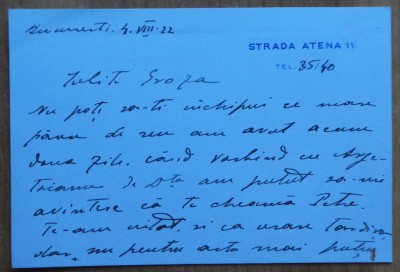 Bucuresti. 4. VIII. 22
STRADA ATENA
TEL. 35/40
Iubite Groza
Nu poţi să-ti închipui ce mare
părere de rău am avut acum
doua zile, când vorbind cu Arge-
toianu de Dta am putut să-mi
amintesc că te cheamă Petre.
Te-am uitat, si ca urare tardiva
dar, nu pentru asta mai puţin